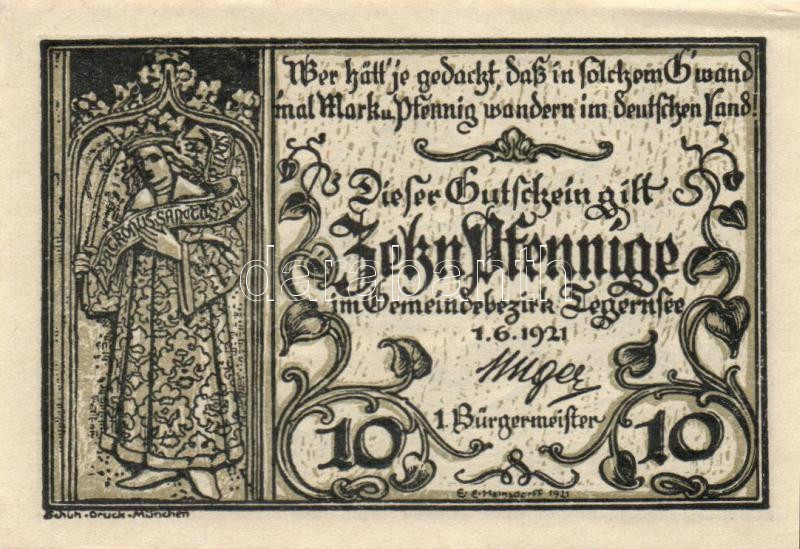 Wer hätt' je gedacht, daß in solchem G'wand
'mal Mark u. Pfennig wandern im deutschen Land!
Dieser Gutschein gilt
Zehn Pfennige
im Gemeindebezirk Tegernsee
1.6.1921
1. Bürgermeister
10 10
PATRONUS SANCTUS
E. E. Heinsdorff 1921
Schuh-Druck-München
darabanth